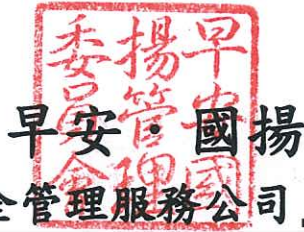 早安國
揚管理
委員會
早安・國揚
全管理服務公司